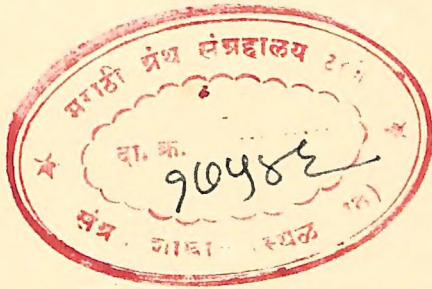 मराठी ग्रंथ संग्रहालय
दा. क्र.
१७५४६
शाखा स्थळ